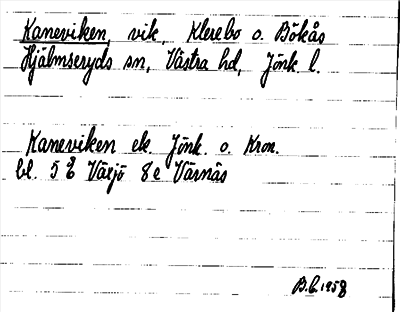 Kaneviken, vik, Klerebo o. Bökås
Hjälmseryds sn, Västra hd, Jönk. l.
Kaneviken ek. Jönk. o. Kron.
bl. 5 E Växjö 8e Värnäs
B.b. 1958